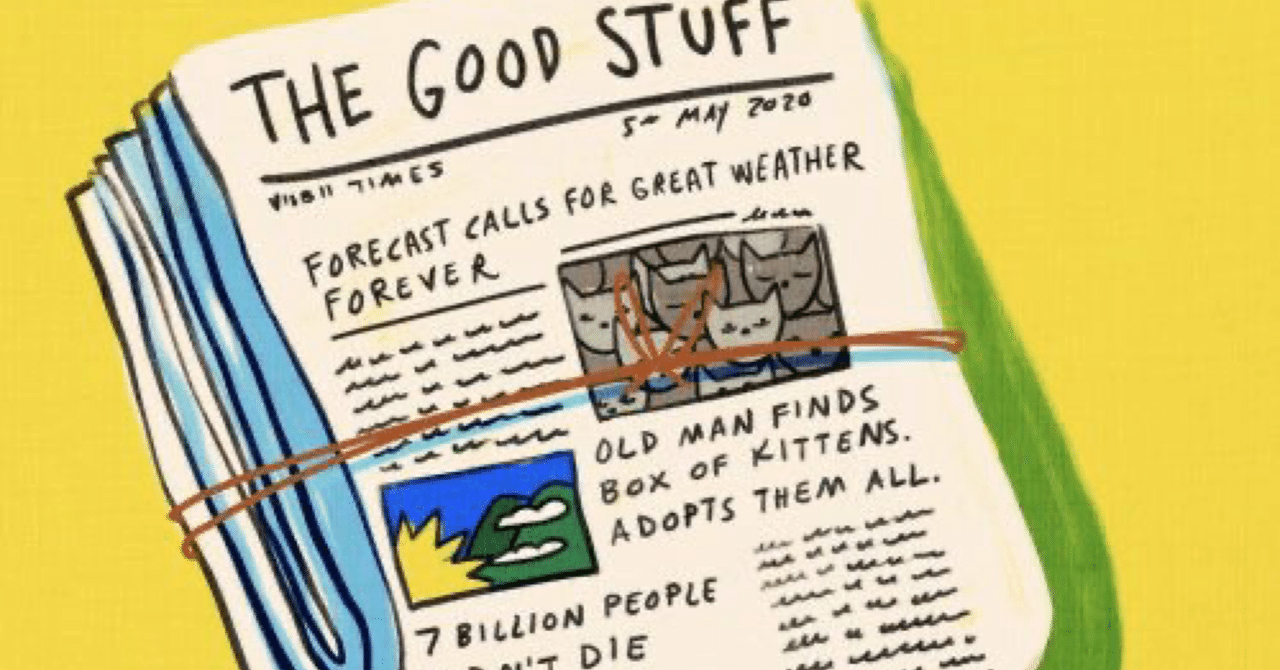 THE GOOD STUFF
MAY 2020
TIMES
FORECAST CALLS FOR GREAT WEATHER
FOREVER
OLD MAN FINDS
BOX OF KITTENS.
ADOPTS THEM ALL.
7 BILLION PEOPLE
DIE